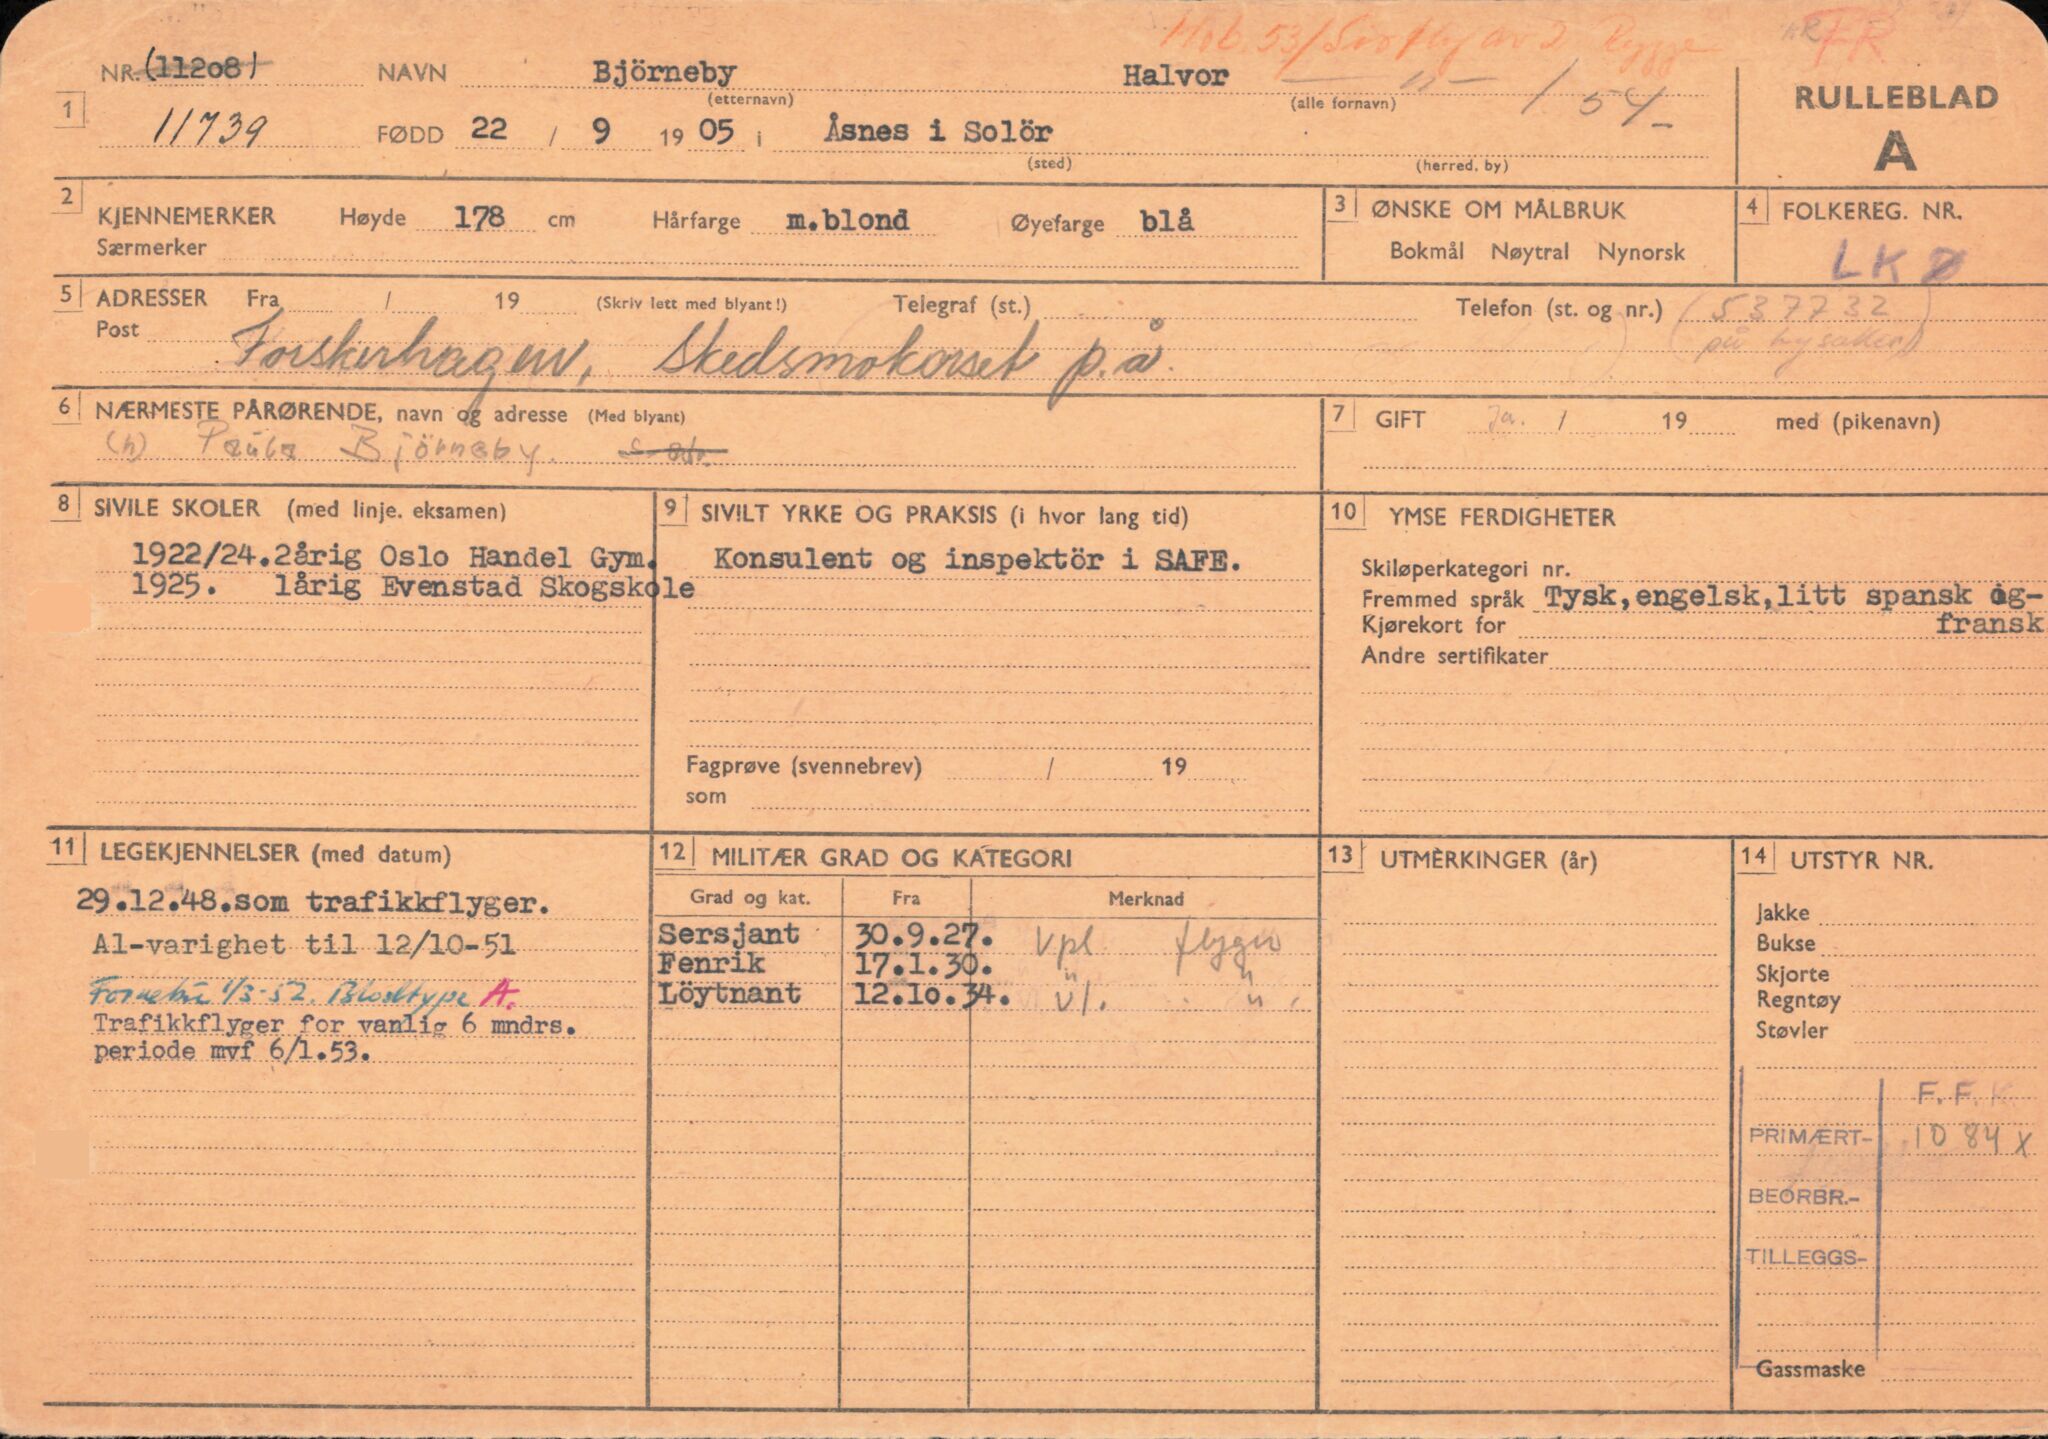 Mob. 53/ av 2 Rygge FR
NR. (11208) NAVN Björneby Halvor — " — / 54
(etternavn) (alle fornavn)
RULLEBLAD
A
1 11739 FØDD 22 / 9 1905 i Åsnes i Solör
(sted) (herred. by)
2 KJENNEMERKER Høyde 178 cm Hårfarge m.blond Øyefarge blå
Særmerker
3 ØNSKE OM MÅLBRUK
Bokmål Nøytral Nynorsk
4 FOLKEREG. NR.
LKØ
5 ADRESSER Fra / 19 (Skriv lett med blyant!) Telegraf (st.) Telefon (st. og nr.) (537732
Post på Lysaker)
Forskerhagen, Skedsmokorset p.å.
6 NÆRMESTE PÅRØRENDE, navn og adresse (Med blyant)
(h) Paula Björneby. s. adr.
7 GIFT Ja. / 19 med (pikenavn)
8 SIVILE SKOLER (med linje. eksamen)
1922/24.2årig Oslo Handel Gym.
1925. 1årig Evenstad Skogskole
9 SIVILT YRKE OG PRAKSIS (i hvor lang tid)
Konsulent og inspektör i SAFE.
Fagprøve (svennebrev) / 19
som
10 YMSE FERDIGHETER
Skiløperkategori nr.
Fremmed språk Tysk,engelsk,litt spansk og-
Kjørekort for fransk
Andre sertifikater
11 LEGEKJENNELSER (med datum)
29.12.48.som trafikkflyger.
A1-varighet til 12/10-51
1/3-52. Blodtype A.
Trafikkflyger for vanlig 6 mndrs.
periode mvf 6/1.53.
12 MILITÆR GRAD OG KATEGORI
Grad og kat. Fra Merknad
Sersjant 30.9.27. Vpl flyger
Fenrik 17.1.30. " "
Löytnant 12.10.34. v1. "
13 UTMERKINGER (år)
14 UTSTYR NR.
Jakke
Bukse
Skjorte
Regntøy
Støvler
F. F. K.
PRIMÆRT- 1084 x
BEORBR.-
TILLEGGS-
Gassmaske